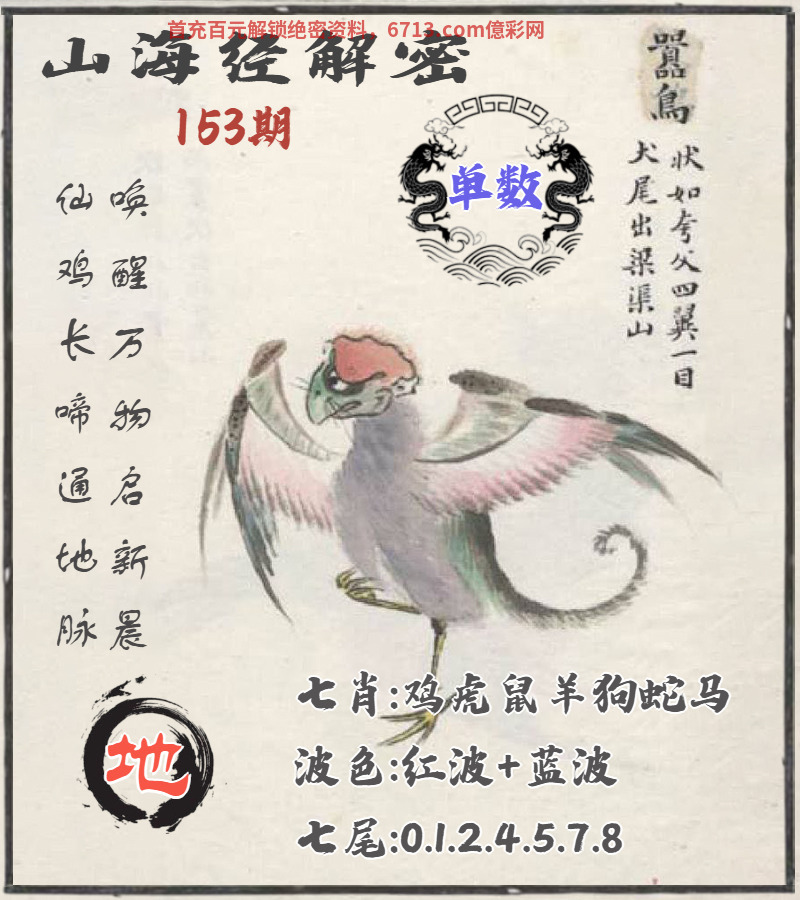 首充百元解锁绝密资料，6713.com億彩网
山海经解密
153期
单数
嚻鳥
状如夸父四翼一目
犬尾出梁渠山
唤醒万物启新晨
仙鸡长啼通地脉
地
七肖:鸡虎鼠羊狗蛇马
波色:红波+蓝波
七尾:0.1.2.4.5.7.8